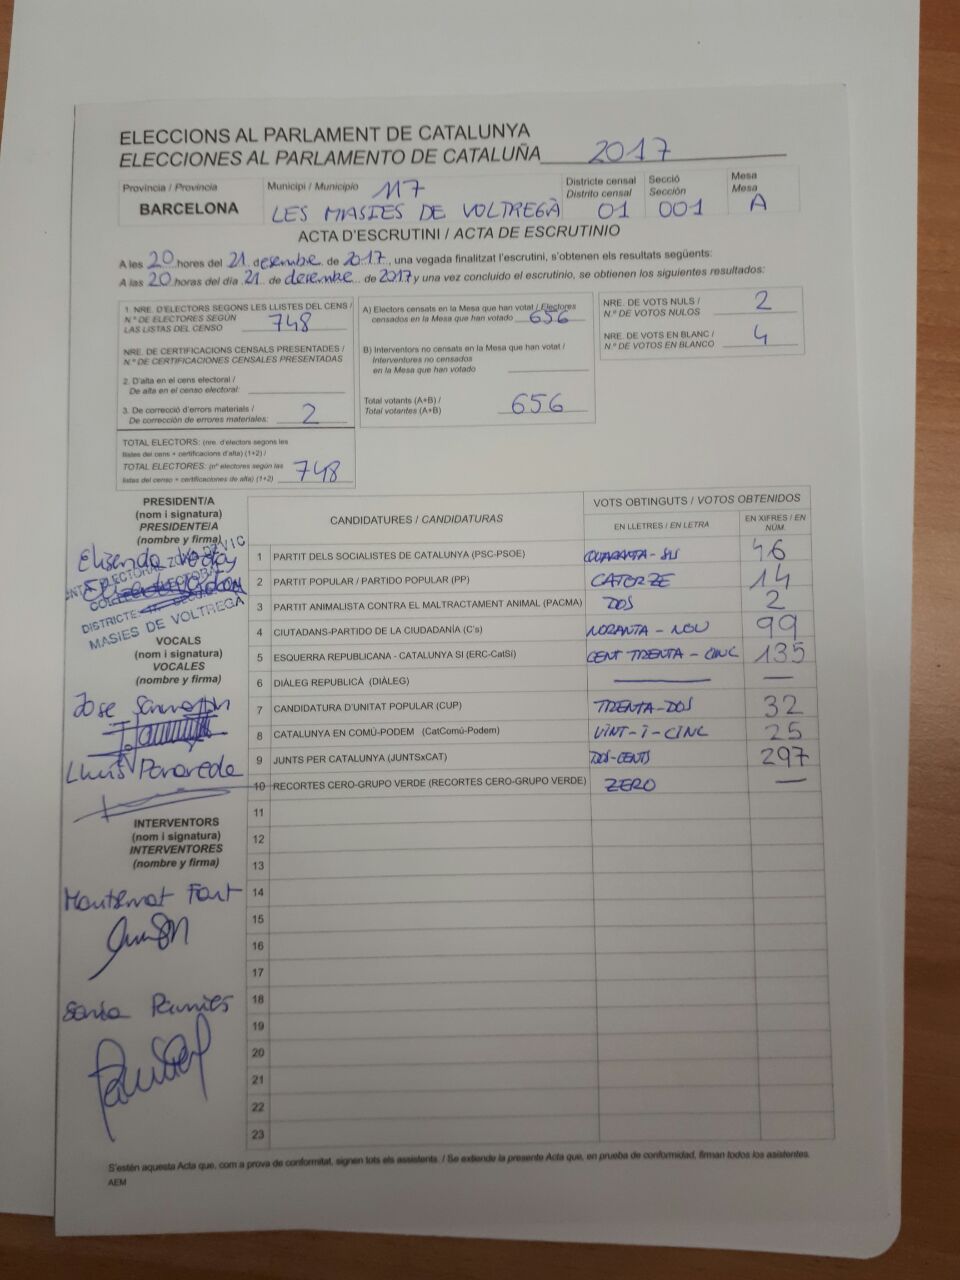 ELECCIONS AL PARLAMENT DE CATALUNYA
ELECCIONES AL PARLAMENTO DE CATALUÑA 2017
Provincia / Provincia
BARCELONA
Municipi / Municipio 117
LES MASIES DE VOLTREGÀ
Districte censal
Distrito censal
01
Secció
Sección
001
Mesa
Mesa
A
ACTA D'ESCRUTINI / ACTA DE ESCRUTINIO
A les 20 hores del 21 desembre de 2017, una vegada finalitzat l'escrutini, s'obtenen els resultats següents:
A las 20 horas del día 21 de desembre de 2017 y una vez concluido el escrutinio, se obtienen los siguientes resultados:
1. NRE. D'ELECTORS SEGONS LES LLISTES DEL CENS /
N.º DE ELECTORES SEGÚN
LAS LISTAS DEL CENSO 748
NRE. DE CERTIFICACIONS CENSALS PRESENTADES /
N.º DE CERTIFICACIONES CENSALES PRESENTADAS
2. D'alta en el cens electoral /
De alta en el censo electoral:
3. De correcció d'errors materials /
De corrección de errores materiales: 2
TOTAL ELECTORS: (nre. d'electors segons les
llistes del cens + certificacions d'alta) (1+2) /
TOTAL ELECTORES: (nº electores según las
listas del censo + certificaciones de alta) (1+2) 748
A) Electors censats en la Mesa que han votat / Electores
censados en la Mesa que han votado 656
B) Interventors no censats en la Mesa que han votat /
Interventores no censados
en la Mesa que han votado
Total votants (A+B) /
Total votantes (A+B) 656
NRE. DE VOTS NULS /
N.º DE VOTOS NULOS 2
NRE. DE VOTS EN BLANC /
N.º DE VOTOS EN BLANCO 4
PRESIDENT/A
(nom i signatura)
PRESIDENTE/A
(nombre y firma)
Elisenda
ELECTORAL ZONA DE VIC
DISTRICTE
MASIES DE VOLTREGÀ
VOCALS
(nom i signatura)
VOCALES
(nombre y firma)
Jose
Lluís Parareda
INTERVENTORS
(nom i signatura)
INTERVENTORES
(nombre y firma)
Montserrat Font
Sonia Ramies
CANDIDATURES / CANDIDATURAS
VOTS OBTINGUTS / VOTOS OBTENIDOS
EN LLETRES / EN LETRA
EN XIFRES / EN NÚM.
1 PARTIT DELS SOCIALISTES DE CATALUNYA (PSC-PSOE) QUARANTA-SIS 46
2 PARTIT POPULAR / PARTIDO POPULAR (PP) CATORZE 14
3 PARTIT ANIMALISTA CONTRA EL MALTRACTAMENT ANIMAL (PACMA) DOS 2
4 CIUTADANS-PARTIDO DE LA CIUDADANÍA (C's) NORANTA-NOU 99
5 ESQUERRA REPUBLICANA - CATALUNYA SÍ (ERC-CatSí) CENT TRENTA-CINC 135
6 DIÀLEG REPUBLICÀ (DIÀLEG) — —
7 CANDIDATURA D'UNITAT POPULAR (CUP) TRENTA-DOS 32
8 CATALUNYA EN COMÚ-PODEM (CatComú-Podem) VINT-I-CINC 25
9 JUNTS PER CATALUNYA (JUNTSxCAT) DOS-CENTS 297
10 RECORTES CERO-GRUPO VERDE (RECORTES CERO-GRUPO VERDE) ZERO —
11
12
13
14
15
16
17
18
19
20
21
22
23
S'estén aquesta Acta que, com a prova de conformitat, signen tots els assistents. / Se extiende la presente Acta que, en prueba de conformidad, firman todos los asistentes.
AEM